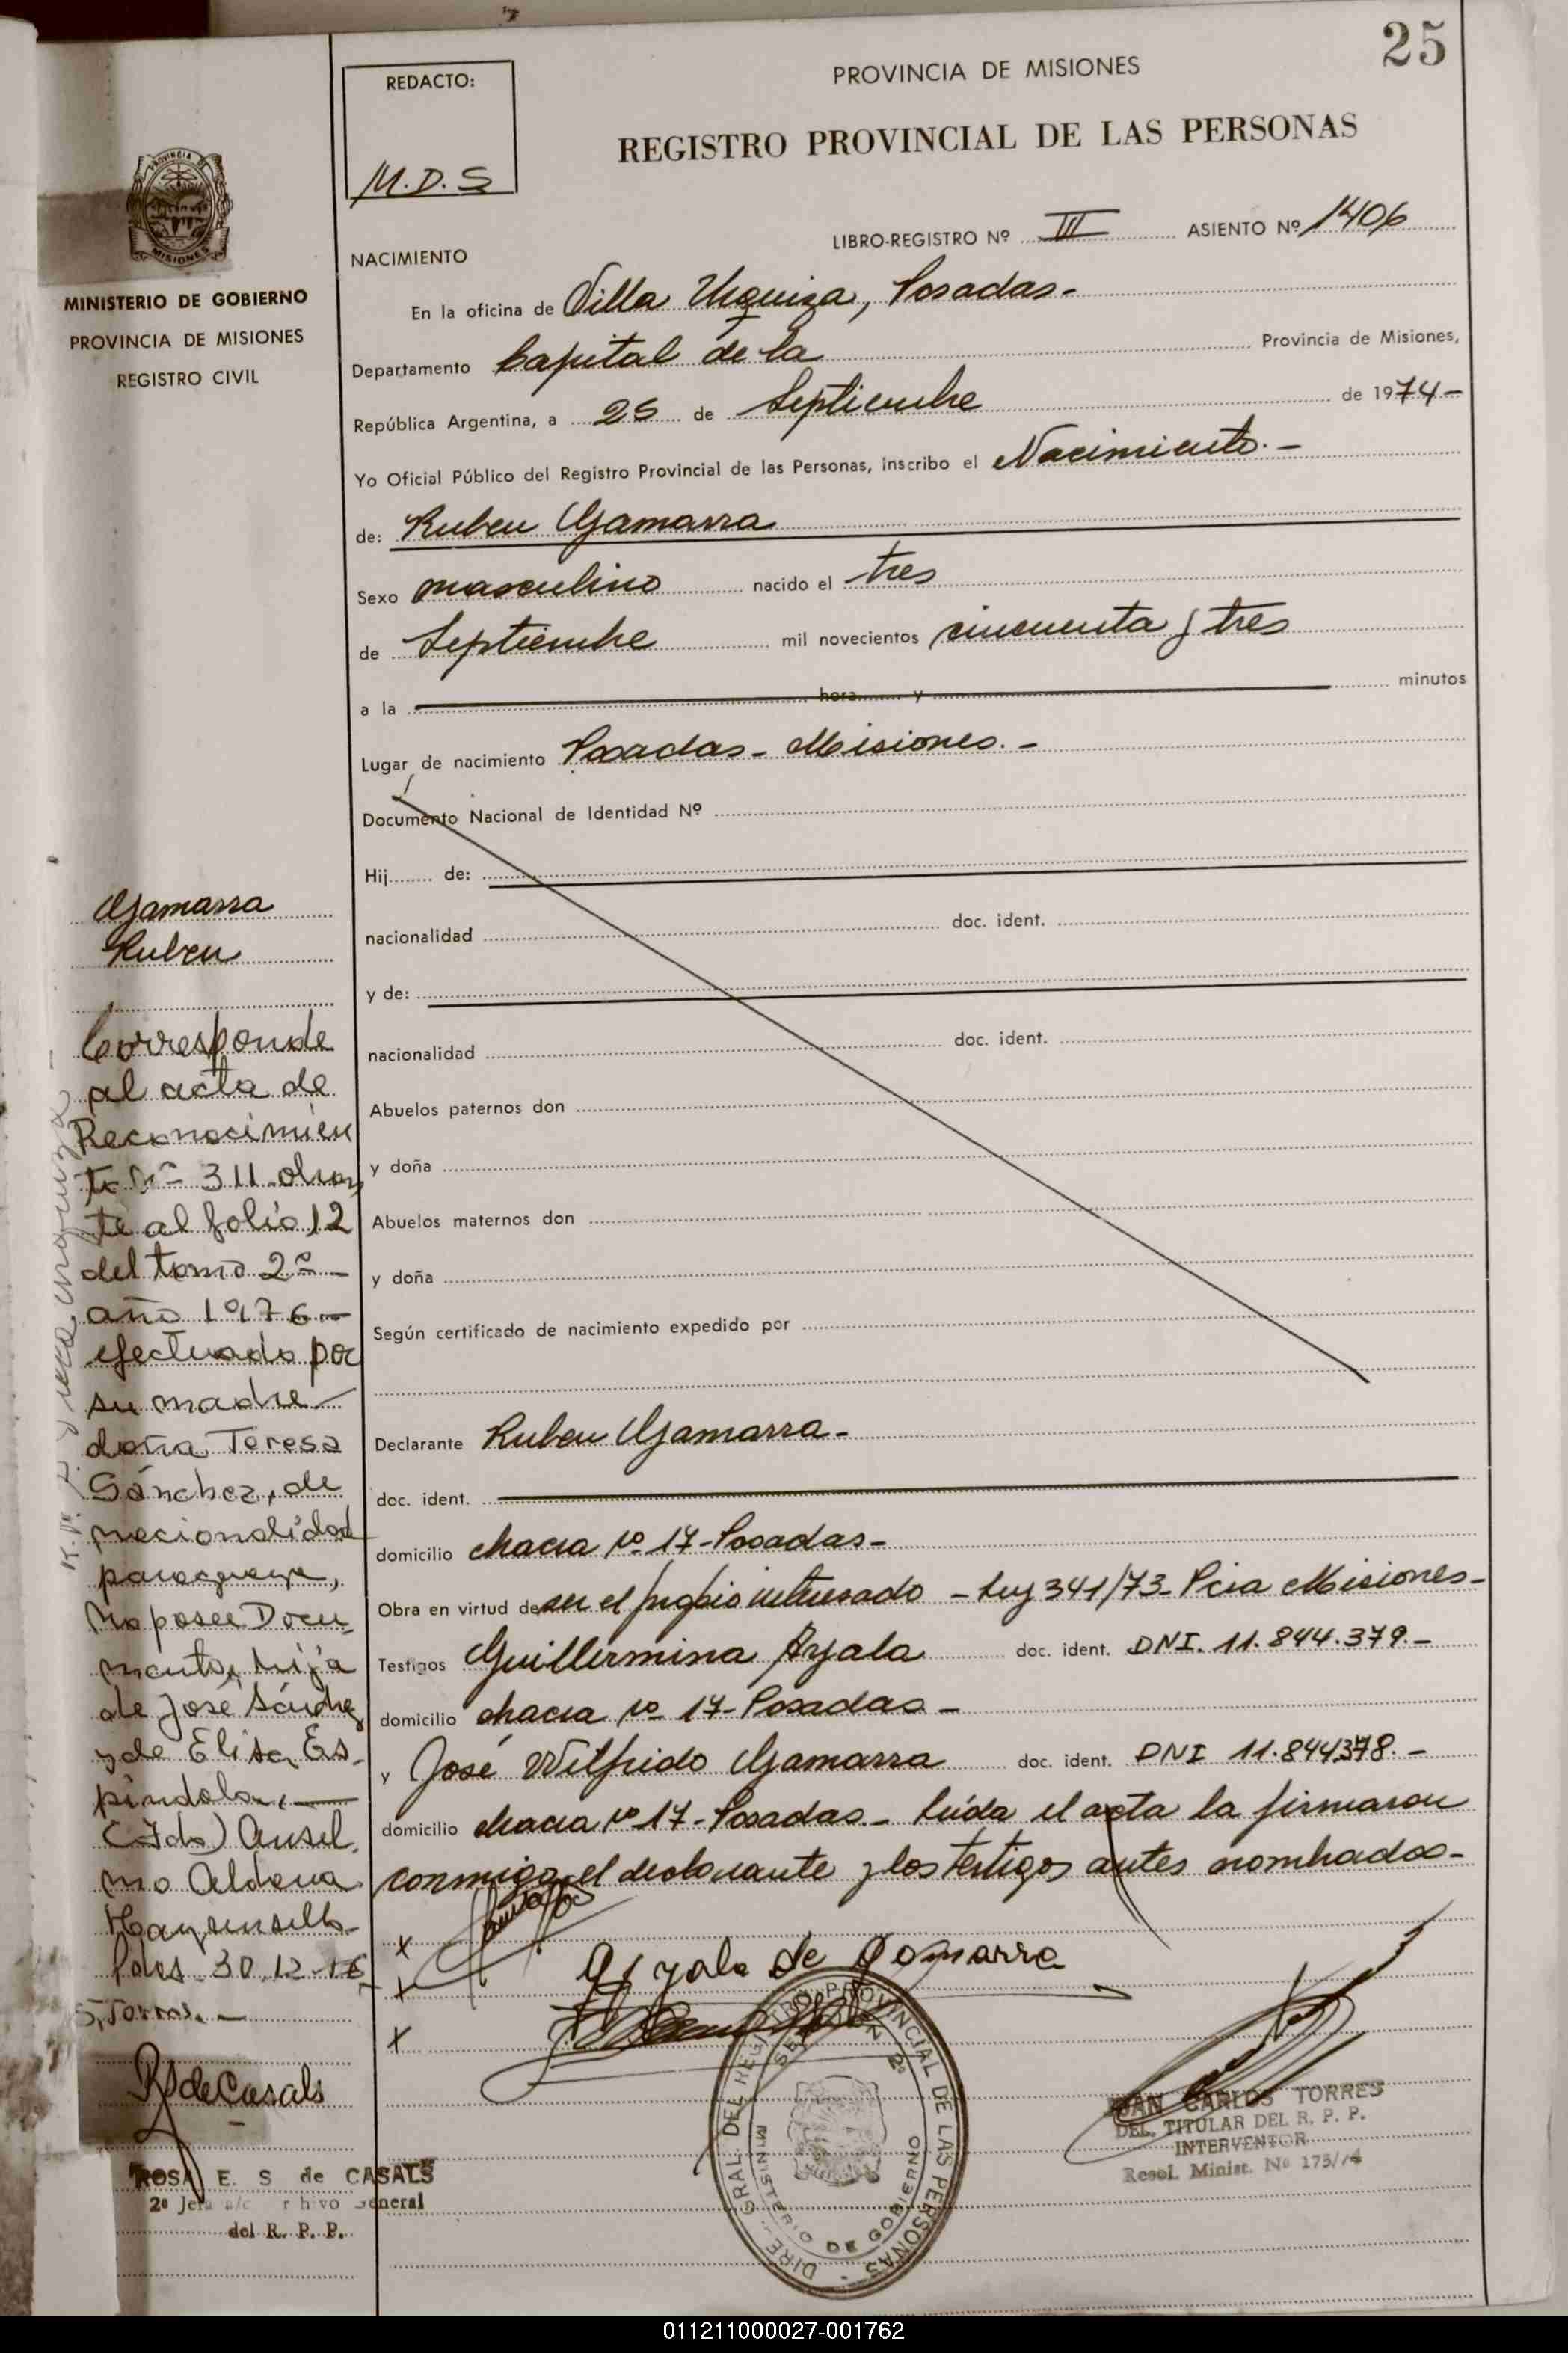 25
PROVINCIA DE MISIONES
REGISTRO PROVINCIAL DE LAS PERSONAS
REDACTO:
M.D.S
LIBRO-REGISTRO Nº III ASIENTO Nº 1406
NACIMIENTO
En la oficina de Villa Urquiza, Posadas-
Departamento Capital de la Provincia de Misiones,
República Argentina, a 25 de Septiembre de 1974-
Yo Oficial Público del Registro Provincial de las Personas, inscribo el Nacimiento.-
de: Ruben Gamarra
Sexo masculino nacido el tres
de Septiembre mil novecientos cincuenta y tres
a la hora y minutos
Lugar de nacimiento Posadas- Misiones.-
Documento Nacional de Identidad Nº
Hij de:
nacionalidad doc. ident.
y de:
nacionalidad doc. ident.
Abuelos paternos don
y doña
Abuelos maternos don
y doña
Según certificado de nacimiento expedido por
Declarante Ruben Gamarra-
doc. ident.
domicilio chacra nº 17-Posadas-
Obra en virtud de ser el propio interesado - Ley 341/73- Pcia Misiones-
Testigos Guillermina Ayala doc. ident. DNI. 11.844.379.-
domicilio chacra nº 17-Posadas-
y José Wilfrido Gamarra doc. ident. DNI 11.844378.-
domicilio chacra nº 17-Posadas- Leída el acta la firmaron
conmigo el declarante y los testigos antes nombrados-
x
x Ayala de Gamarra
x
DIRE. GRAL. DEL REGISTRO PROVINCIAL DE LAS PERSONAS
SECCION 2º
MINISTERIO DE GOBIERNO
JUAN CARLOS TORRES
DEL. TITULAR DEL R. P. P.
INTERVENTOR
Resol. Minist. Nº 175/74
PROVINCIA DE
MISIONES
MINISTERIO DE GOBIERNO
PROVINCIA DE MISIONES
REGISTRO CIVIL
Gamarra
Ruben
Corresponde
al acta de
Reconocimien
to Nº 311 obran
te al folio 12
del tomo 2º-
año 1976-
efectuado por
su madre
doña Teresa
Sánchez, de
nacionalidad
paraguaya,
no posee Docu
mento, hija
de José Sánchez
y de Elisa Es-
píndola,-
(Fdo) Ansel
mo Aldana
Hay un sello-
Pdas 30-12-76
S, Torres.-
RSdeCasals
ROSA E. S de CASALS
2º Jefa a/c Archivo General
del R. P. P.
011211000027-001762